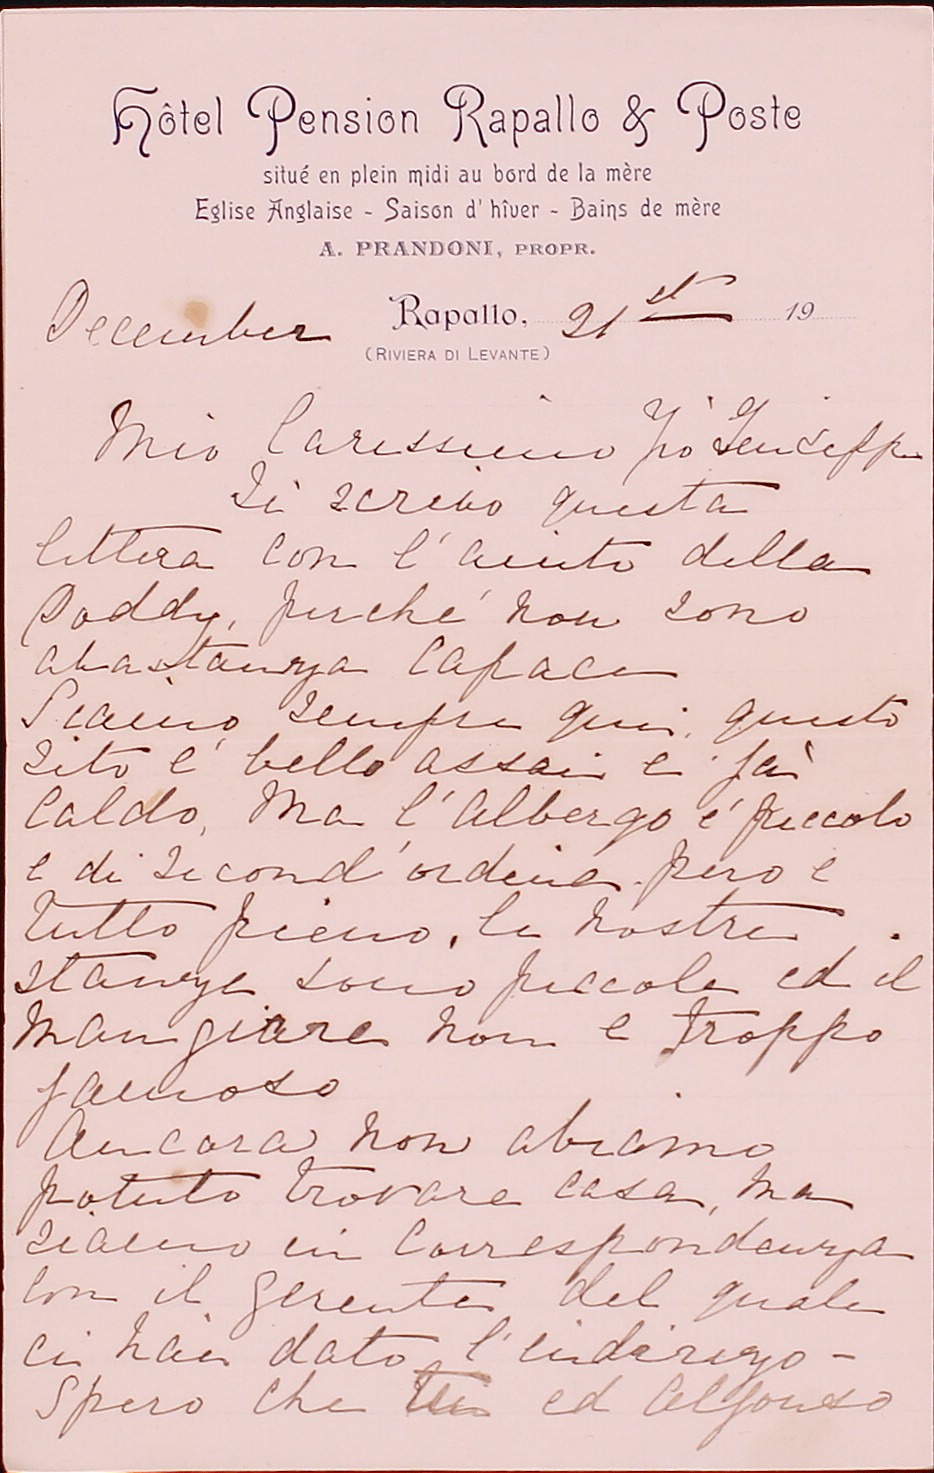 Hôtel Pension Rapallo & Poste
situé en plein midi au bord de la mère
Eglise Anglaise - Saison d'hîver - Bains de mère
A. PRANDONI, PROPR.
December Rapallo, 21st 19
(RIVIERA DI LEVANTE)
Mio Carissimo Giuseppe
Ti scrivo questa
lettera con l'aiuto della
Doddy, perché non sono
abastanza capace
Siamo sempre qui, questo
sito é bello assai e fà
Caldo, Ma l'Albergo é piccolo
e di Second'ordine. pero e
tutto pieno, le nostre
stanze sono piccole ed il
Mangiare non e troppo
famoso
Ancora non abiamo
potuto trovare casa, ma
siamo in Correspondenza
con il Gerente del quale
ci hai dato l'indirizzo -
Spero che tu ed Alfonso